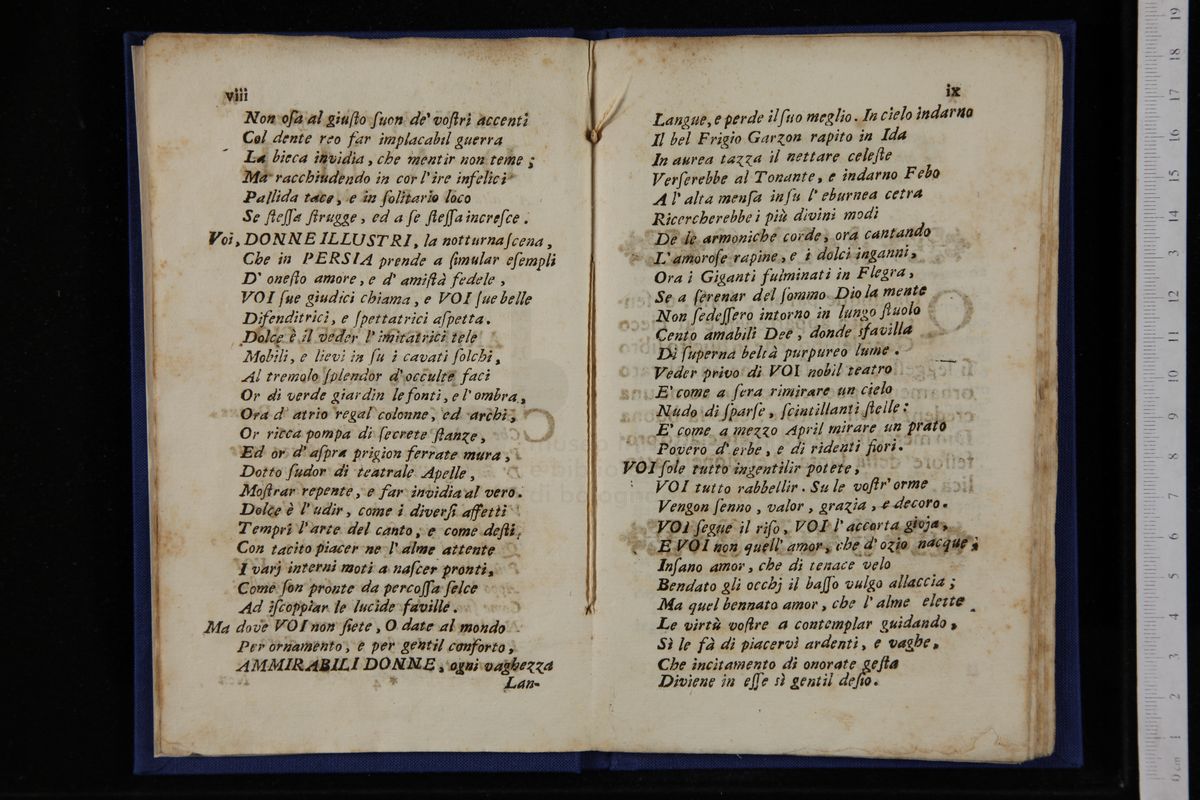 viii
Non oſa al giuſto ſuon de' voſtri accenti
Col dente reo far implacabil guerra
La bieca invidia, che mentir non teme;
Ma racchiudendo in cor l'ire infelici
Pallida tace, e in ſolitario loco
Se ſteſſa ſtrugge, ed a ſe ſteſſa increſce.
Voi, DONNE ILLUSTRI, la notturna ſcena,
Che in PERSIA prende a ſimular eſempli
D' oneſto amore, e d' amiſtà fedele,
VOI ſue giudici chiama, e VOI ſue belle
Difenditrici, e ſpettatrici aſpetta.
Dolce è il veder l'imitatrici tele
Mobili, e lievi in ſu i cavati ſolchi,
Al tremolo ſplendor d'occulte faci
Or di verde giardin le fonti, e l'ombra,
Ora d' atrio regal colonne, ed archi,
Or ricca pompa di ſecrete ſtanze,
Ed or d'aſpra prigion ferrate mura,
Dotto ſudor di teatrale Apelle,
Moſtrar repente, e far invidia al vero.
Dolce è l'udir, come i diverſi affetti
Tempri l'arte del canto, e come deſti,
Con tacito piacer ne l'alme attente
I varj interni moti a naſcer pronti,
Come ſon pronte da percoſſa ſelce
Ad iſcoppiar le lucide faville.
Ma dove VOI non ſiete, O date al mondo
Per ornamento, e per gentil conforto,
AMMIRABILI DONNE, ogni vaghezza
Lan-
ix
Langue, e perde il ſuo meglio. In cielo indarno
Il bel Frigio Garzon rapito in Ida
In aurea tazza il nettare celeſte
Verſerebbe al Tonante, e indarno Febo
A l'alta menſa in ſu l'eburnea cetra
Ricercherebbe i più divini modi
De le armoniche corde, ora cantando
L'amoroſe rapine, e i dolci inganni,
Ora i Giganti fulminati in Flegra,
Se a ſerenar del ſommo Dio la mente
Non ſedeſſero intorno in lungo ſtuolo
Cento amabili Dee, donde sfavilla
Di ſuperna beltà purpureo lume.
Veder privo di VOI nobil teatro
E' come a ſera rimirare un cielo
Nudo di ſparſe, ſcintillanti ſtelle:
E' come a mezzo April mirare un prato
Povero d'erbe, e di ridenti fiori.
VOI ſole tutto ingentilir potete,
VOI tutto rabbellir. Su le voſtr'orme
Vengon ſenno, valor, grazia, e decoro.
VOI ſegue il riſo, VOI l'accorta gioja,
E VOI non quell'amor, che d'ozio nacque;
Inſano amor, che di tenace velo
Bendato gli occhj il baſſo vulgo allaccia;
Ma quel bennato amor, che l'alme elette
Le virtù voſtre a contemplar guidando,
Sì le fà di piacervì ardenti, e vaghe,
Che incitamento di onorate geſta
Diviene in eſſe sì gentil deſio.